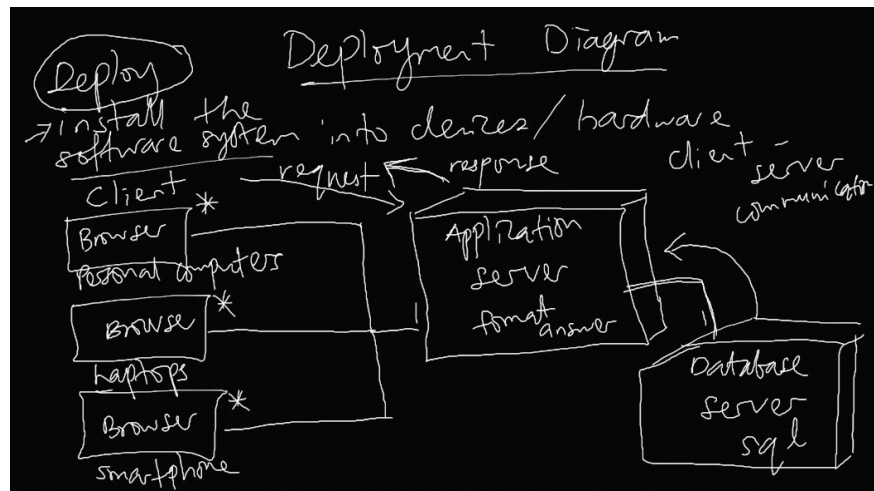 Deployment Diagram
Deploy
→ install the
software system into devizes / hardware
client server
communication
request
response
Client
Browser *
Pesonal computers
Browser *
Laptops
Browser *
smartphone
Application
server
format
answer
1
1
Database
server
sql